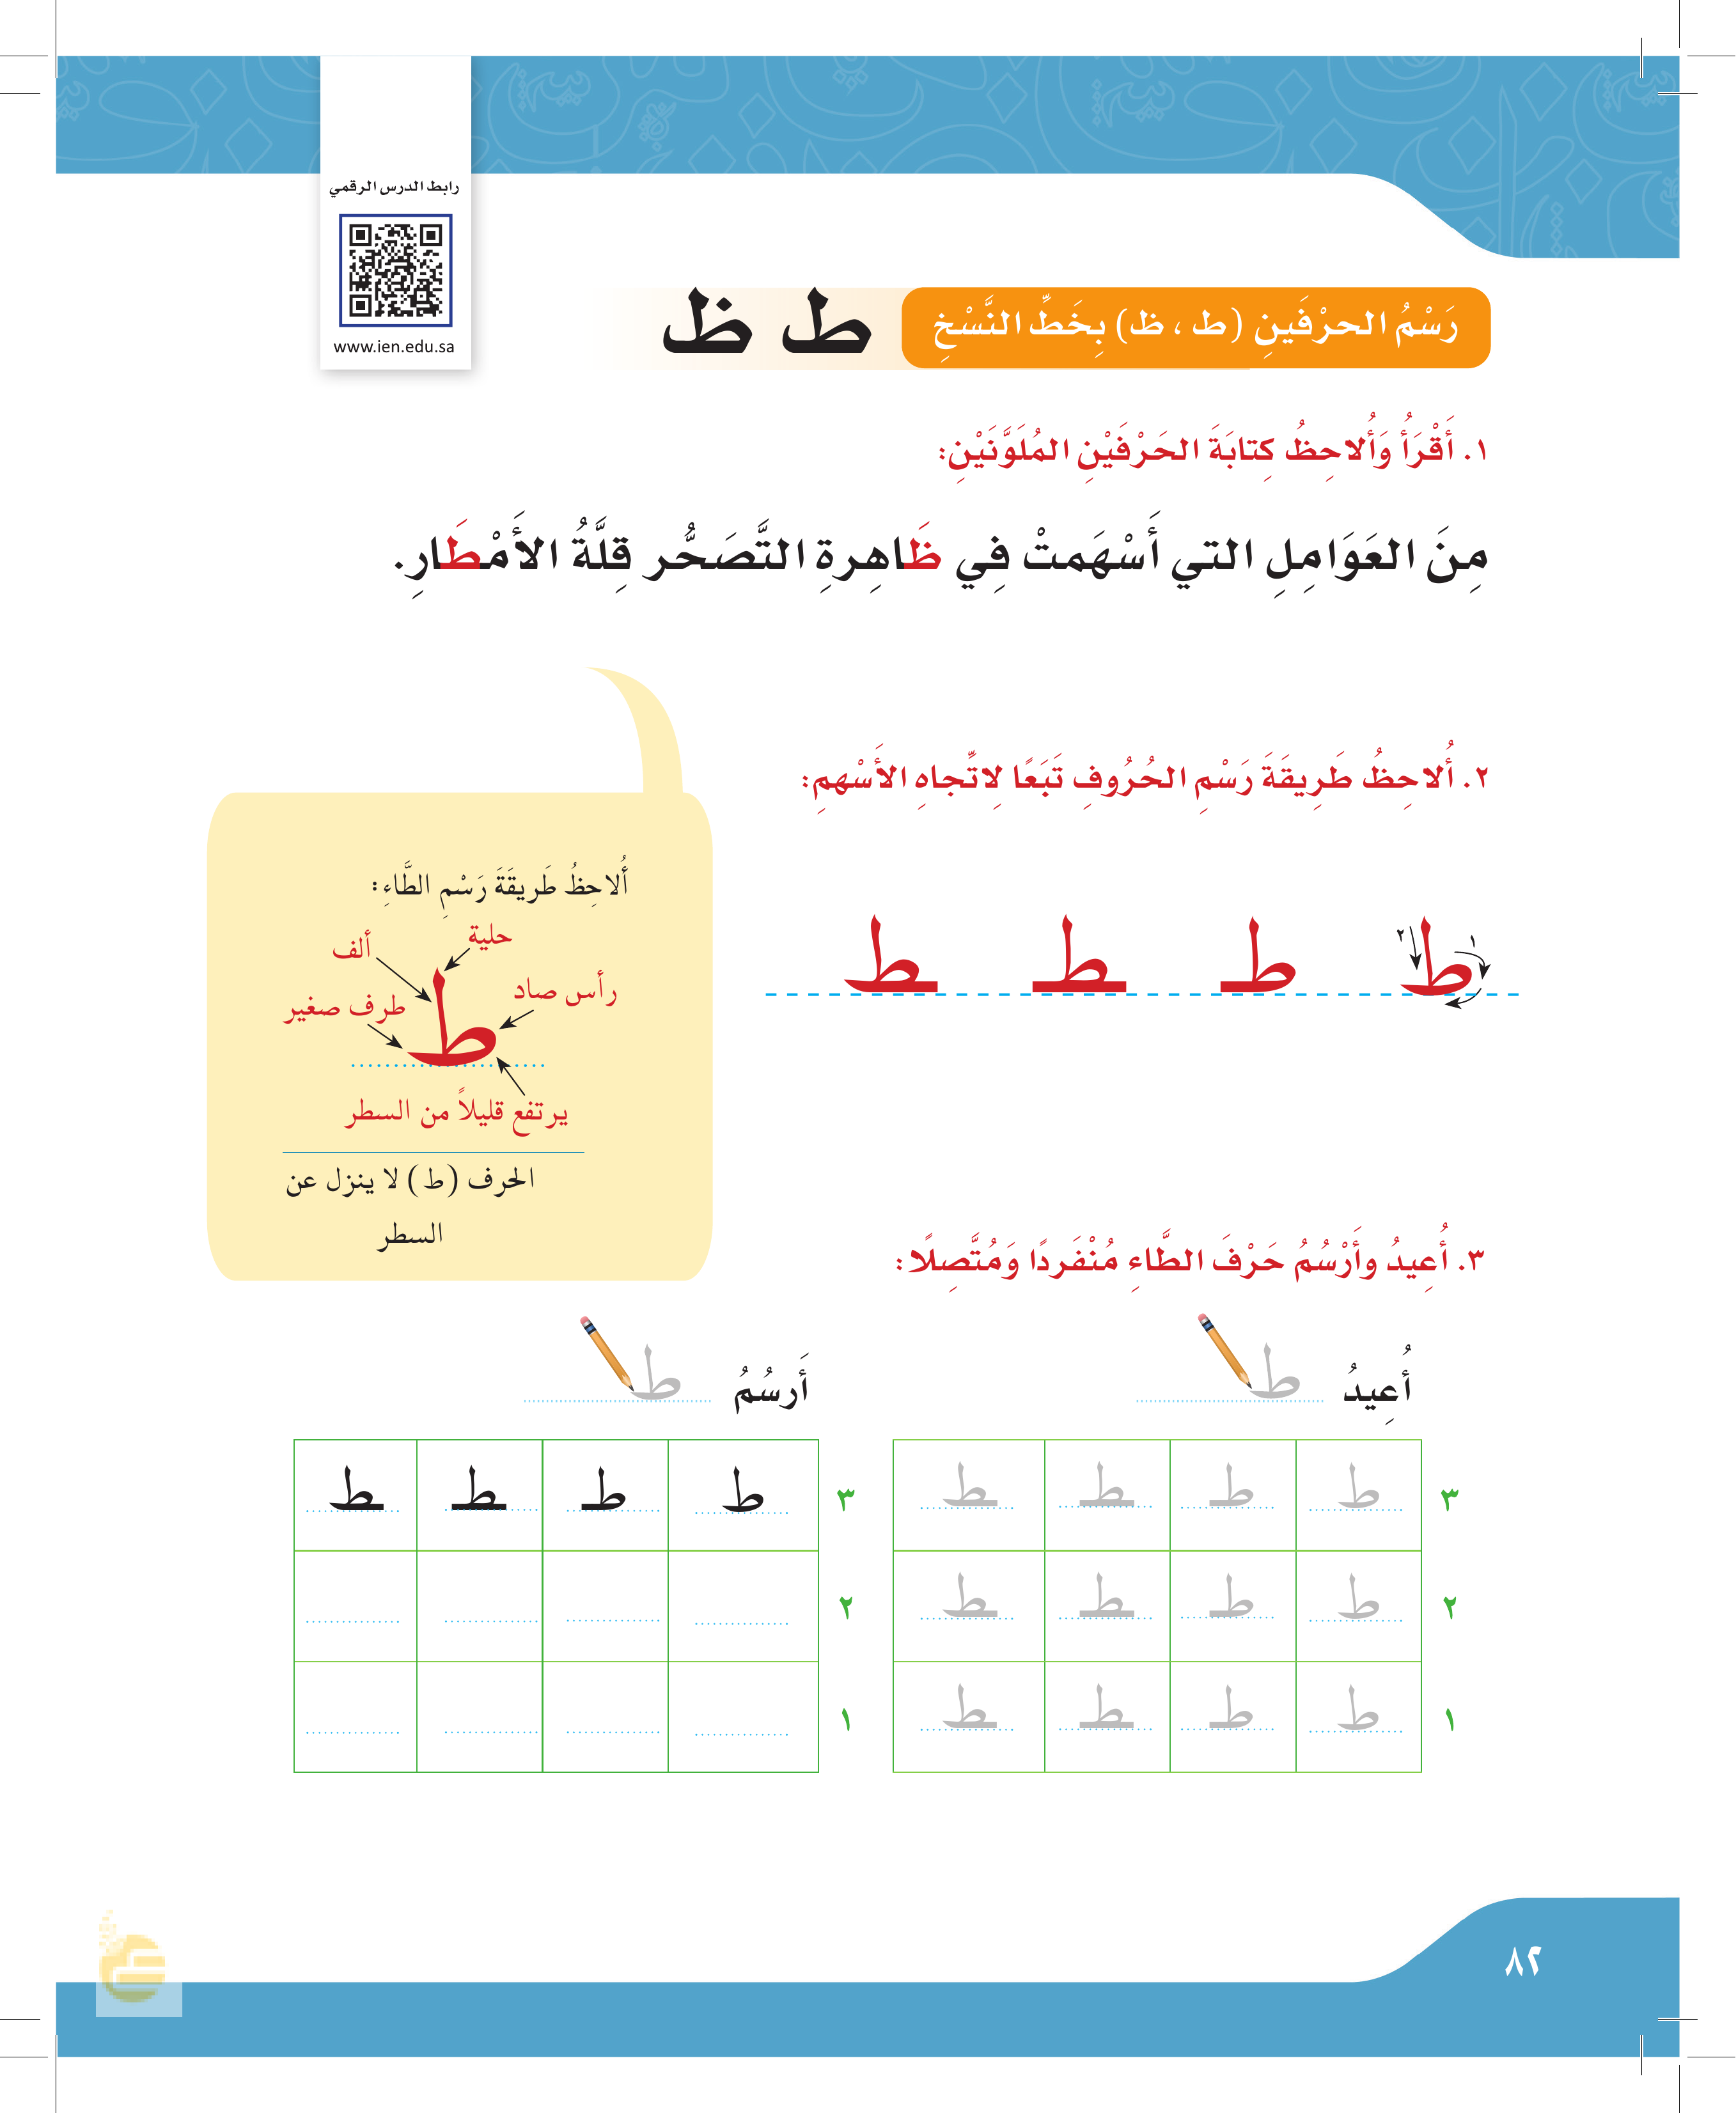 رابط الدرس الرقمي
www.ien.edu.sa
رَسْمُ الحرْفَينِ (ط ، ظ) بِخَطِّ النَّسْخِ ط ظ
١. أَقْرَأُ وَأُلاحِظُ كِتابَةَ الحَرْفَيْنِ المُلَوَّنَيْنِ:
مِنَ العَوَامِلِ التي أَسْهَمتْ فِي ظَاهِرةِ التَّصَحُّر قِلَّةُ الأَمْطَارِ.
٢. أُلاحِظُ طَرِيقَةَ رَسْمِ الحُرُوفِ تَبَعًا لِاتِّجاهِ الأَسْهمِ:
١ ٢
ط طـ ـطـ ـط
أُلاحِظُ طَرِيقَةَ رَسْمِ الطَّاءِ:
حلية
ألف
رأس صاد
طرف صغير
ط
يرتفع قليلاً من السطر
الحرف (ط) لا ينزل عن
السطر
٣. أُعِيدُ وأَرْسُمُ حَرْفَ الطَّاءِ مُنْفَردًا وَمُتَّصِلًا:
أُعِيدُ ط
٣ ط طـ ـطـ ـط
٢ ط طـ ـطـ ـط
١ ط طـ ـطـ ـط
أَرسُمُ ط
٣ ط طـ ـطـ ـط
٢
١
٨٢